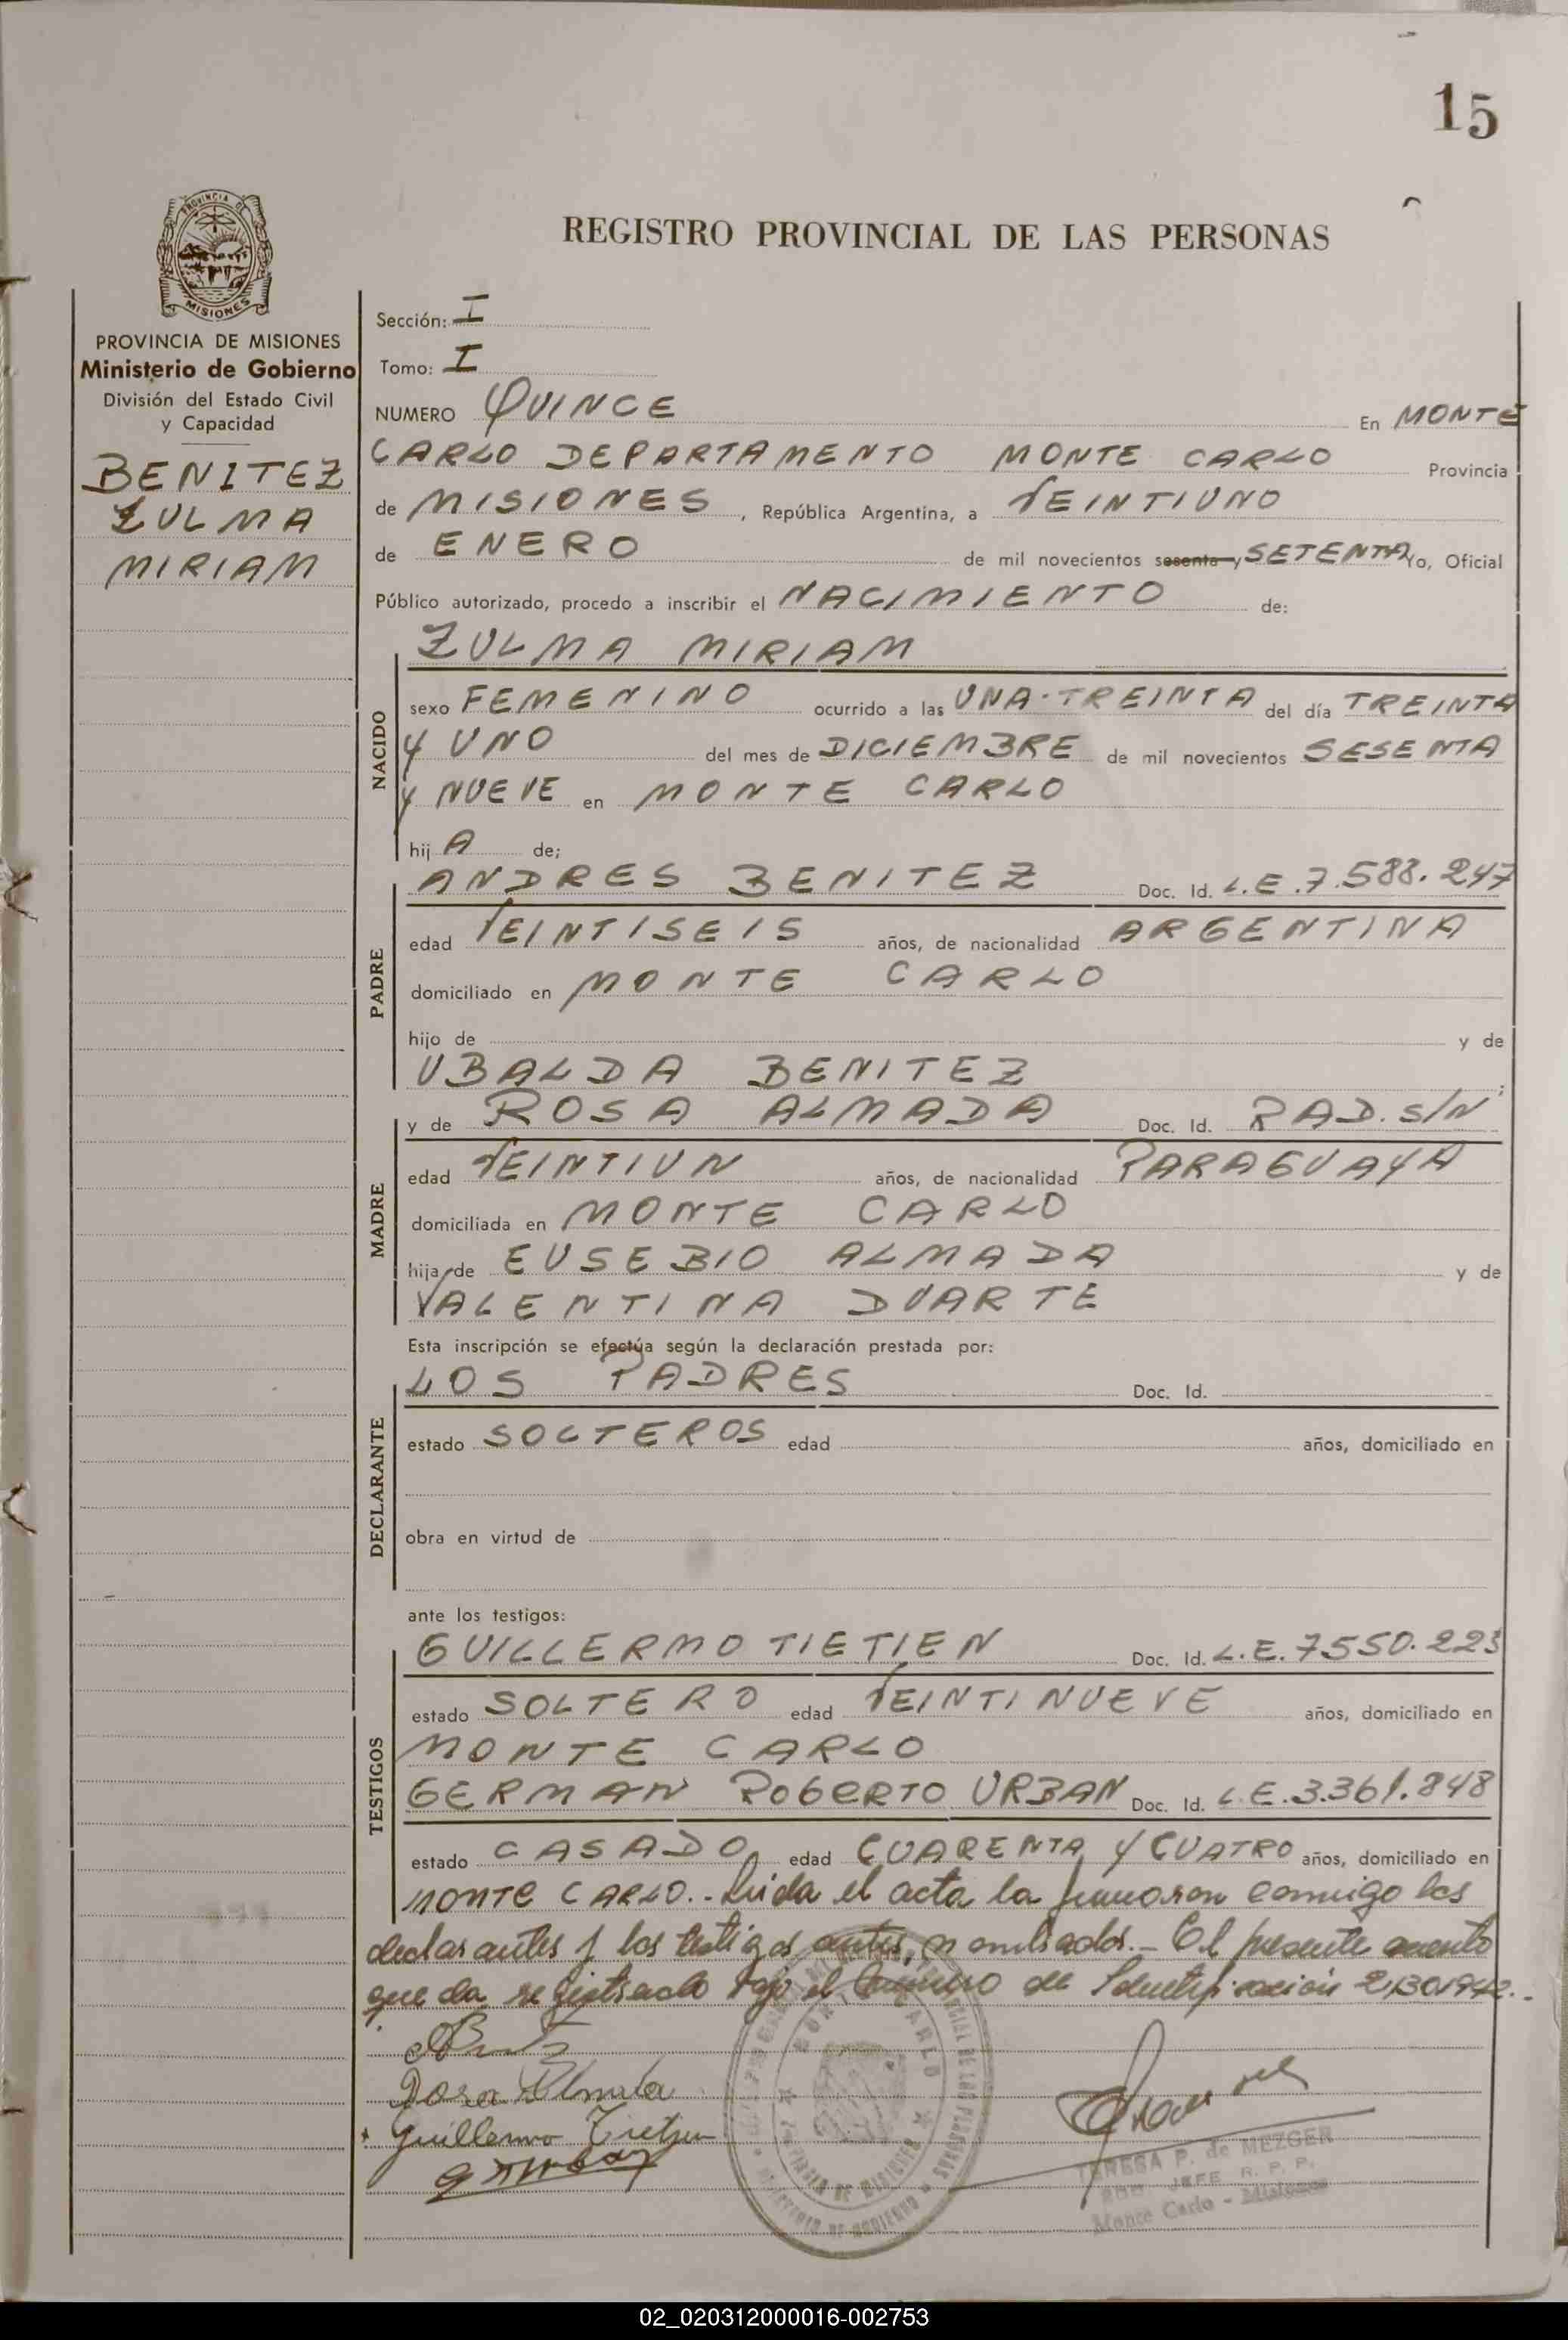 15
REGISTRO PROVINCIAL DE LAS PERSONAS
PROVINCIA DE MISIONES
PROVINCIA DE MISIONES
Ministerio de Gobierno
División del Estado Civil
y Capacidad
BENITEZ
ZULMA
MIRIAM
Sección: I
Tomo: I
NUMERO QUINCE En MONTE
CARLO DEPARTAMENTO MONTE CARLO Provincia
de MISIONES, República Argentina, a VEINTIUNO
de ENERO de mil novecientos sesenta y SETENTA Yo, Oficial
Público autorizado, procedo a inscribir el NACIMIENTO de:
ZULMA MIRIAM
NACIDO
sexo FEMENINO ocurrido a las UNA-TREINTA del día TREINTA
Y UNO del mes de DICIEMBRE de mil novecientos SESENTA
Y NUEVE en MONTE CARLO
hij A de;
PADRE
ANDRES BENITEZ Doc. Id. L.E.7.588.247
edad VEINTISEIS años, de nacionalidad ARGENTINA
domiciliado en MONTE CARLO
hijo de y de
UBALDA BENITEZ ;
MADRE
y de ROSA ALMADA Doc. Id. RAD. S/N
edad VEINTIUN años, de nacionalidad PARAGUAYA
domiciliada en MONTE CARLO
hija de EUSEBIO ALMADA y de
VALENTINA DUARTE
Esta inscripción se efectúa según la declaración prestada por:
DECLARANTE
LOS PADRES Doc. Id.
estado SOLTEROS edad años, domiciliado en
obra en virtud de
ante los testigos:
TESTIGOS
GUILLERMO TIETIEN Doc. Id. L.E.7550.223
estado SOLTERO edad VEINTINUEVE años, domiciliado en
MONTE CARLO
GERMAN ROBERTO URBAN Doc. Id. L.E.3.361.848
estado CASADO edad CUARENTA Y CUATRO años, domiciliado en
MONTE CARLO.- Leida el acta la firmaron conmigo los
declarantes y los testigos antes nombrados.- El presente asento
queda registrado bajo el Numero de Identificación 21301942.-
Rosa Almada
Guillermo Tietjen
MONTE CARLO
PROVINCIA DE MISIONES
MINISTERIO DE GOBIERNO
TERESA P. de MEZGER
JEFE R. P. P.
Monte Carlo - Misiones
02_020312000016-002753